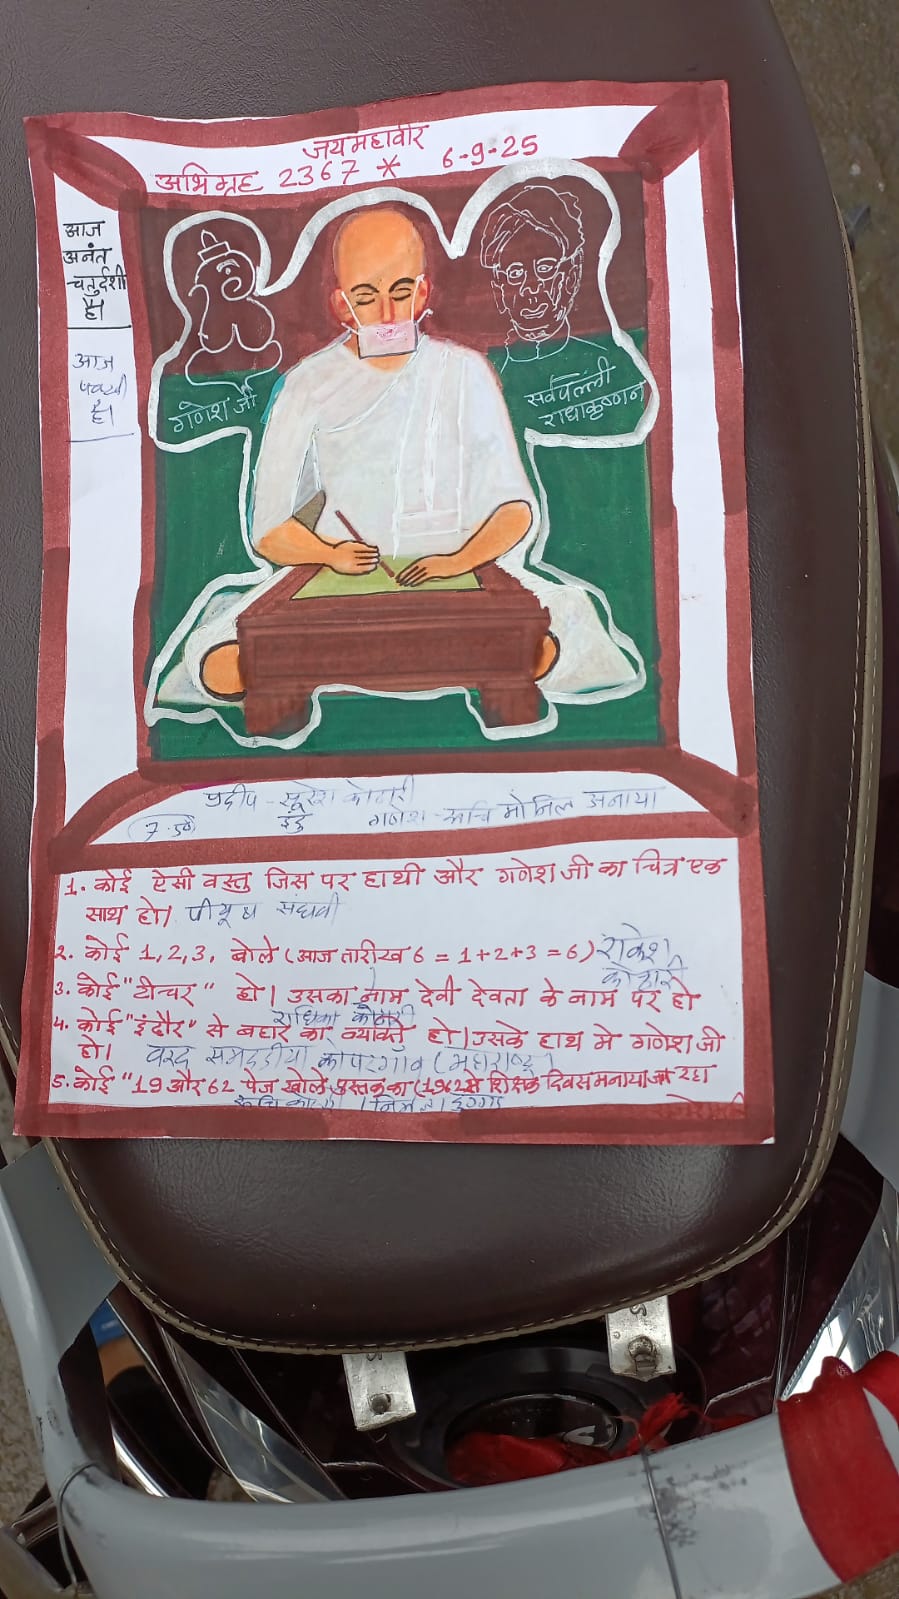 जय महावीर
अभिग्रह 2367 * 6-9-25
आज
अनंत
चतुर्दशी
है।
आज
है।
गणेश जी
सर्वपल्ली
राधाकृष्णन
प्रदीप - सूरेश कोठारी
इंदु गणेश - रूचि मोमिल अनाया
1. कोई ऐसी वस्तु जिस पर हाथी और गणेश जी का चित्र एक
साथ हो। पीयूष सघवी
2. कोई 1, 2, 3, बोले (आज तारीख 6 = 1+2+3 = 6) राकेश
कोठारी
3. कोई "टीचर" हो। उसका नाम देवी देवता के नाम पर हो
राधिका कोठारी
4. कोई "इंदौर" से बहार का व्यक्ति हो। उसके हाथ मे गणेश जी
हो। वरद समदडीया कोपरगाँव (महाराष्ट्र)
5. कोई "19 और 62 पेज खोले पुस्तक का (1962 से शिक्षक दिवस मनाया जा रहा